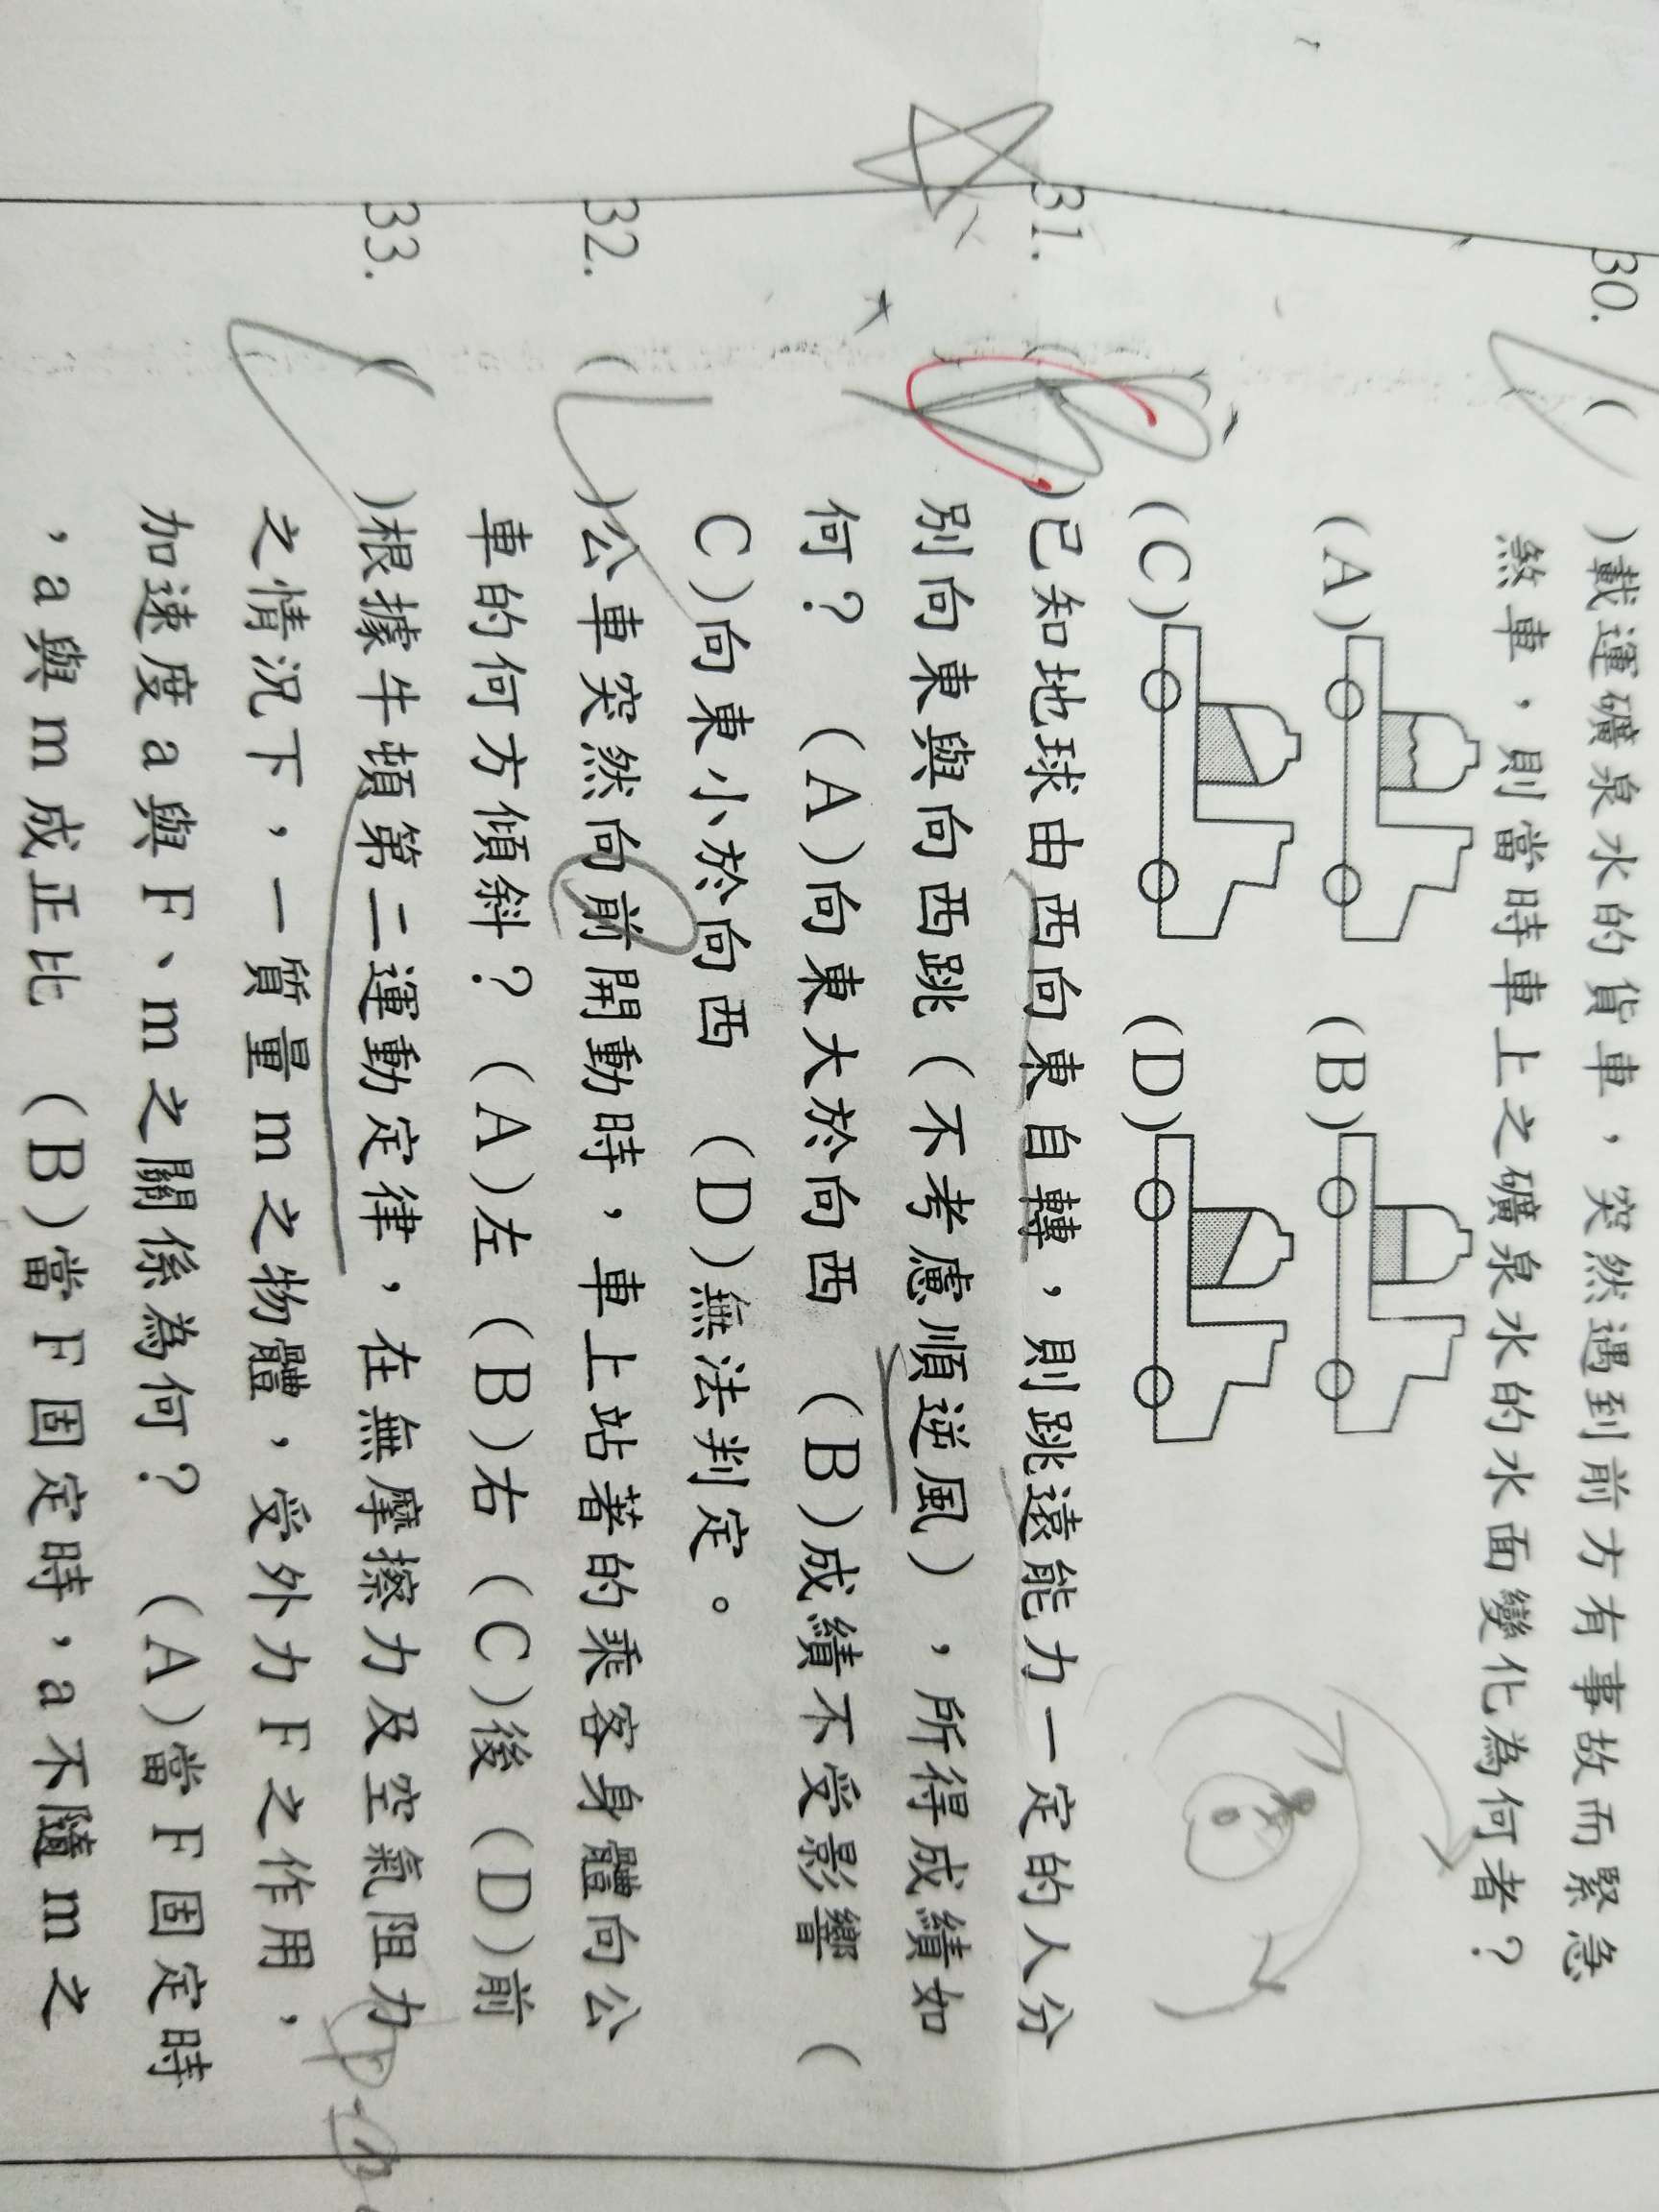 30. (　)載運礦泉水的貨車，突然遇到前方有事故而緊急
煞車，則當時車上之礦泉水的水面變化為何者？
(A) (B)
(C) (D)
31. (　)已知地球由西向東自轉，則跳遠能力一定的人分
別向東與向西跳（不考慮順逆風），所得成績如
何？ (A)向東大於向西 (B)成績不受影響 (
C)向東小於向西 (D)無法判定。
32. (　)公車突然向前開動時，車上站著的乘客身體向公
車的何方傾斜？ (A)左 (B)右 (C)後 (D)前
33. (　)根據牛頓第二運動定律，在無摩擦力及空氣阻力
之情況下，一質量m之物體，受外力F之作用，
加速度a與F、m之關係為何？ (A)當F固定時
，a與m成正比 (B)當F固定時，a不隨m之